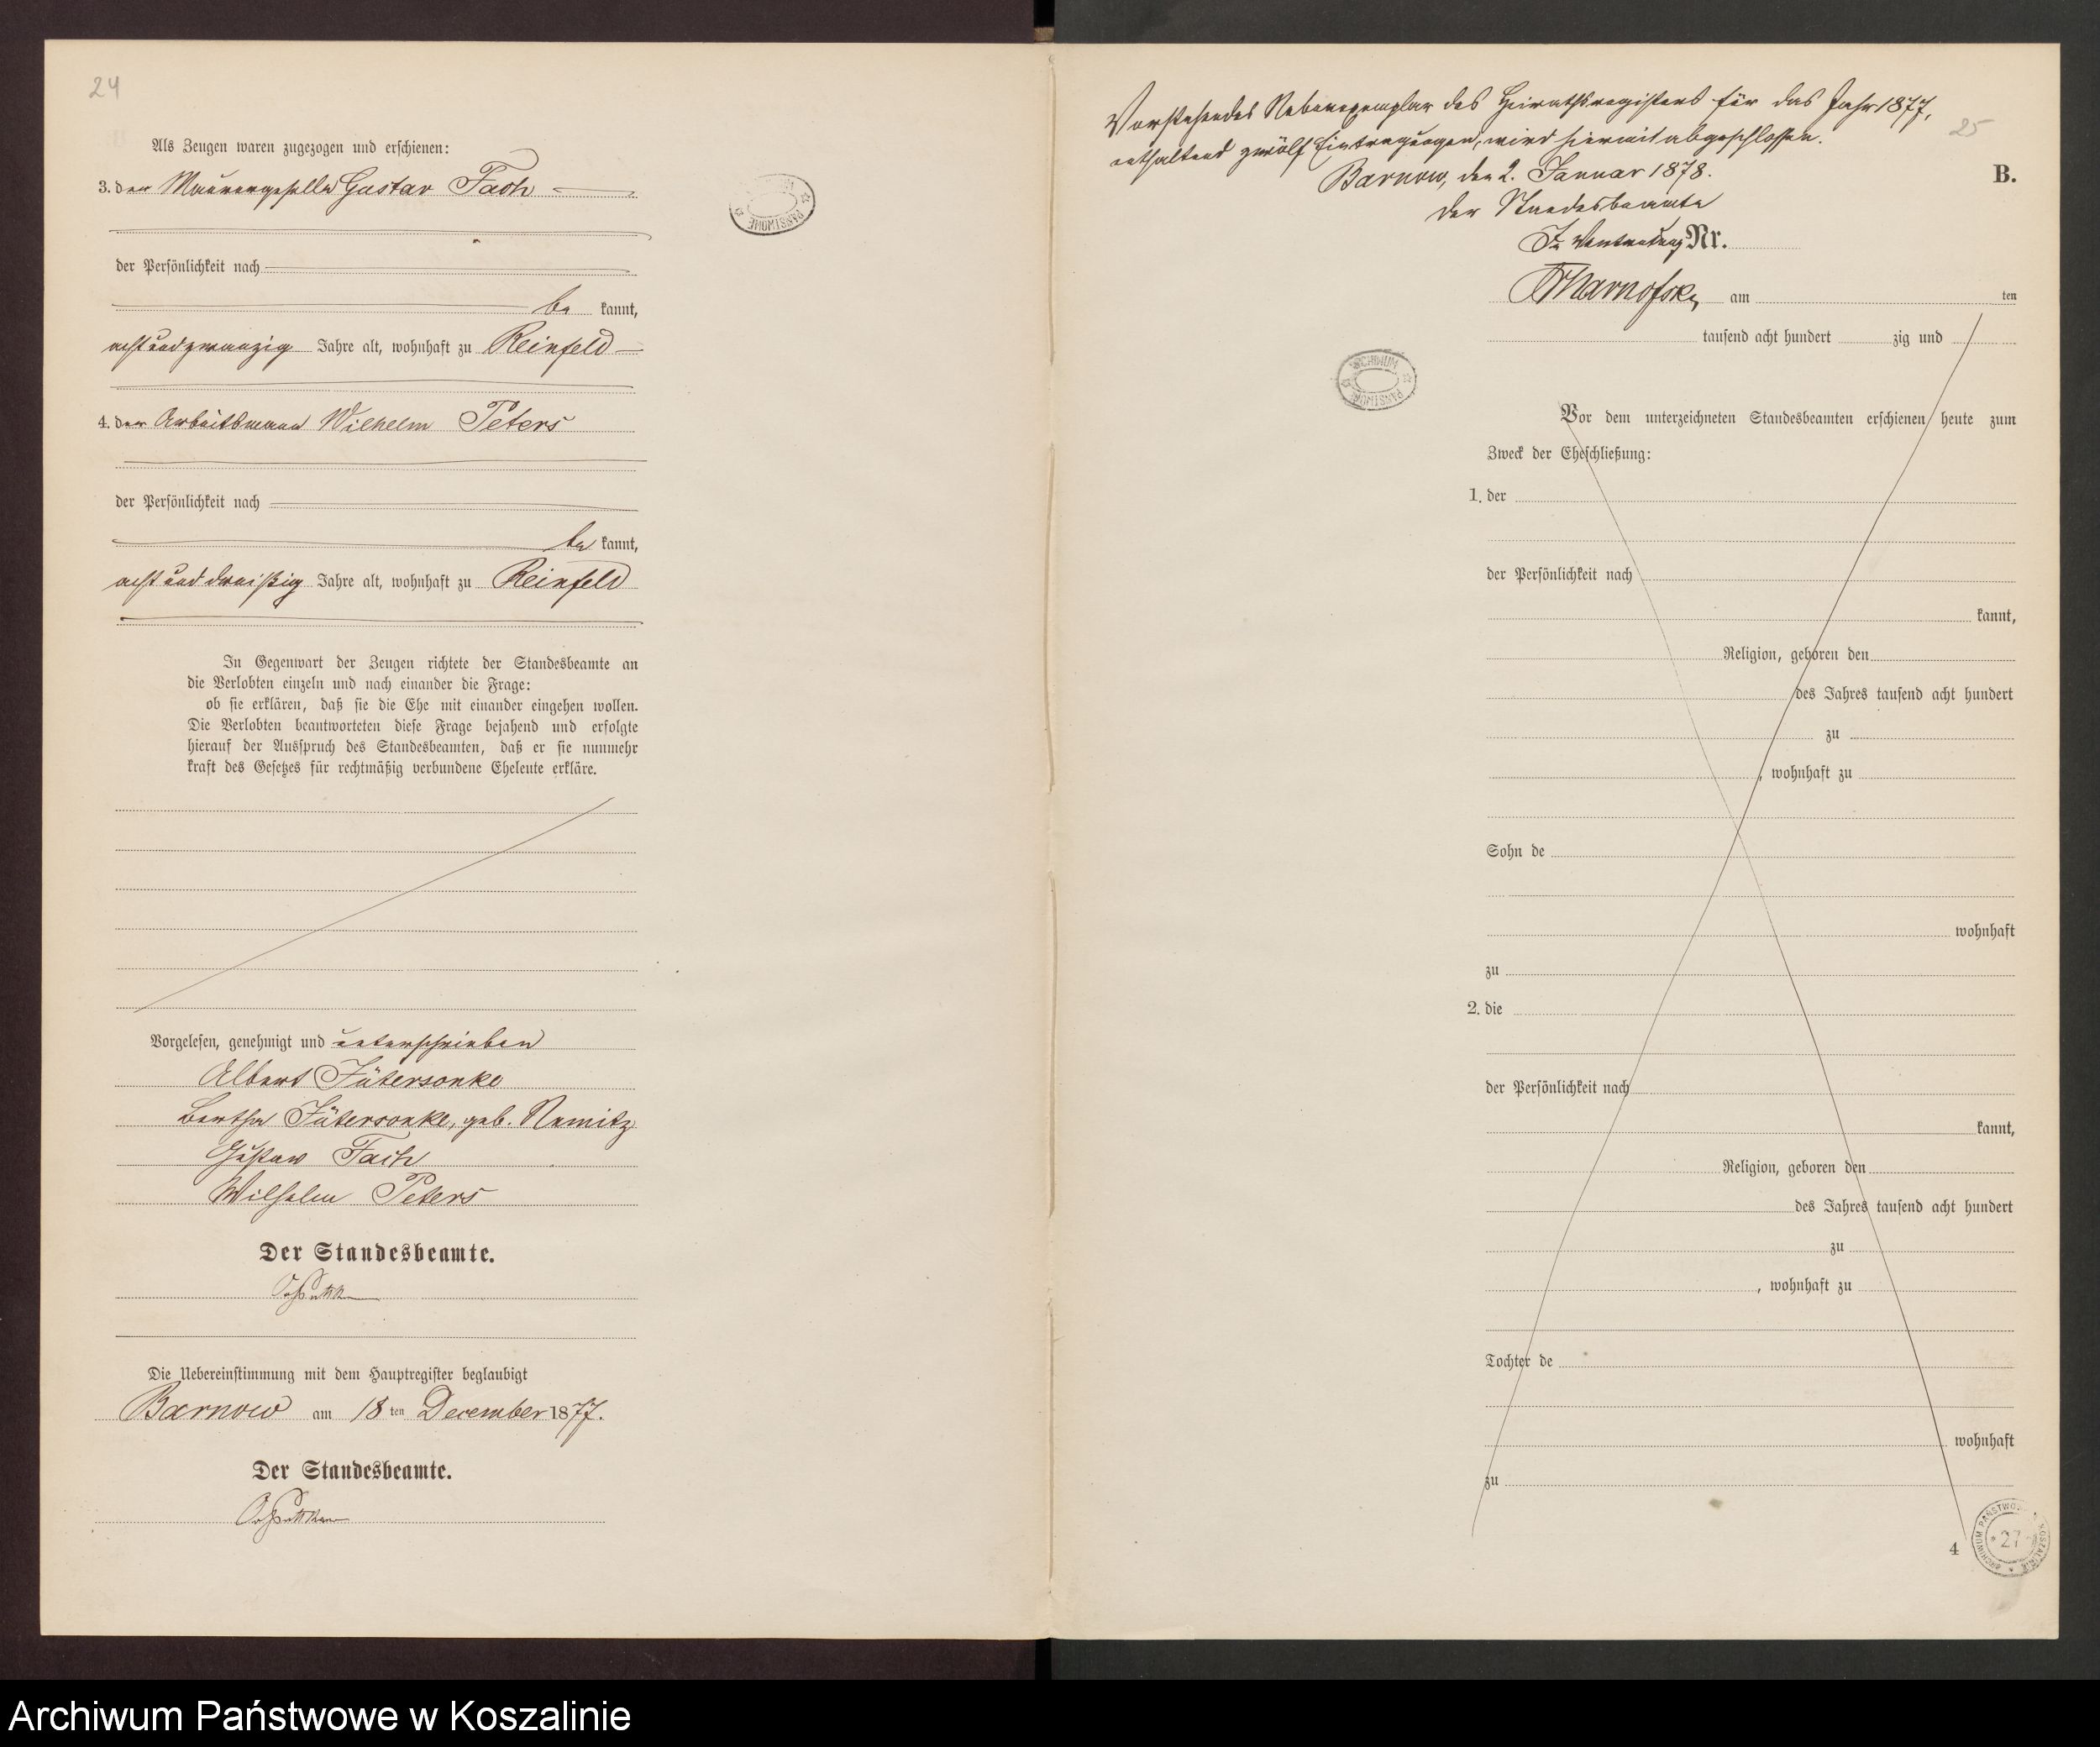 24
Als Zeugen waren zugezogen und erschienen:
3. der Maurergeselle Gustav Fach
der Persönlichkeit nach
be kannt,
achtundzwanzig Jahre alt, wohnhaft zu Reinfeld
4. der Arbeitsmann Wilhelm Peters
der Persönlichkeit nach
be kannt,
acht und dreißig Jahre alt, wohnhaft zu Reinfeld
In Gegenwart der Zeugen richtete der Standesbeamte an
die Verlobten einzeln und nach einander die Frage:
ob sie erklären, daß sie die Ehe mit einander eingehen wollen.
Die Verlobten beantworteten diese Frage bejahend und erfolgte
hierauf der Ausspruch des Standesbeamten, daß er sie nunmehr
kraft des Gesetzes für rechtmäßig verbundene Eheleute erkläre.
Vorgelesen, genehmigt und unterschrieben
Albert Jütersonke
Bertha Jütersonke, geb. Namitz
Gustav Fach
Wilhelm Peters
Der Standesbeamte.
Die Uebereinstimmung mit dem Hauptregister beglaubigt
Barnow am 18 ten December 1877.
Der Standesbeamte.
Vorstehendes Nebenexemplar des Heirathsregisters für das Jahr 1877,
enthaltend zwölf Eintragungen, wird hiermit abgeschlossen.
25
Barnow, den 2. Januar 1878.
B.
Der Standesbeamte
In Vertretung
Nr.
am ten
tausend acht hundert zig und
Vor dem unterzeichneten Standesbeamten erschienen heute zum
Zweck der Eheschließung:
1. der
der Persönlichkeit nach
kannt,
Religion, geboren den
des Jahres tausend acht hundert
zu
, wohnhaft zu
Sohn de
wohnhaft
zu
2. die
der Persönlichkeit nach
kannt,
Religion, geboren den
des Jahres tausend acht hundert
zu
, wohnhaft zu
Tochter de
wohnhaft
zu
4
27
Archiwum Państwowe w Koszalinie